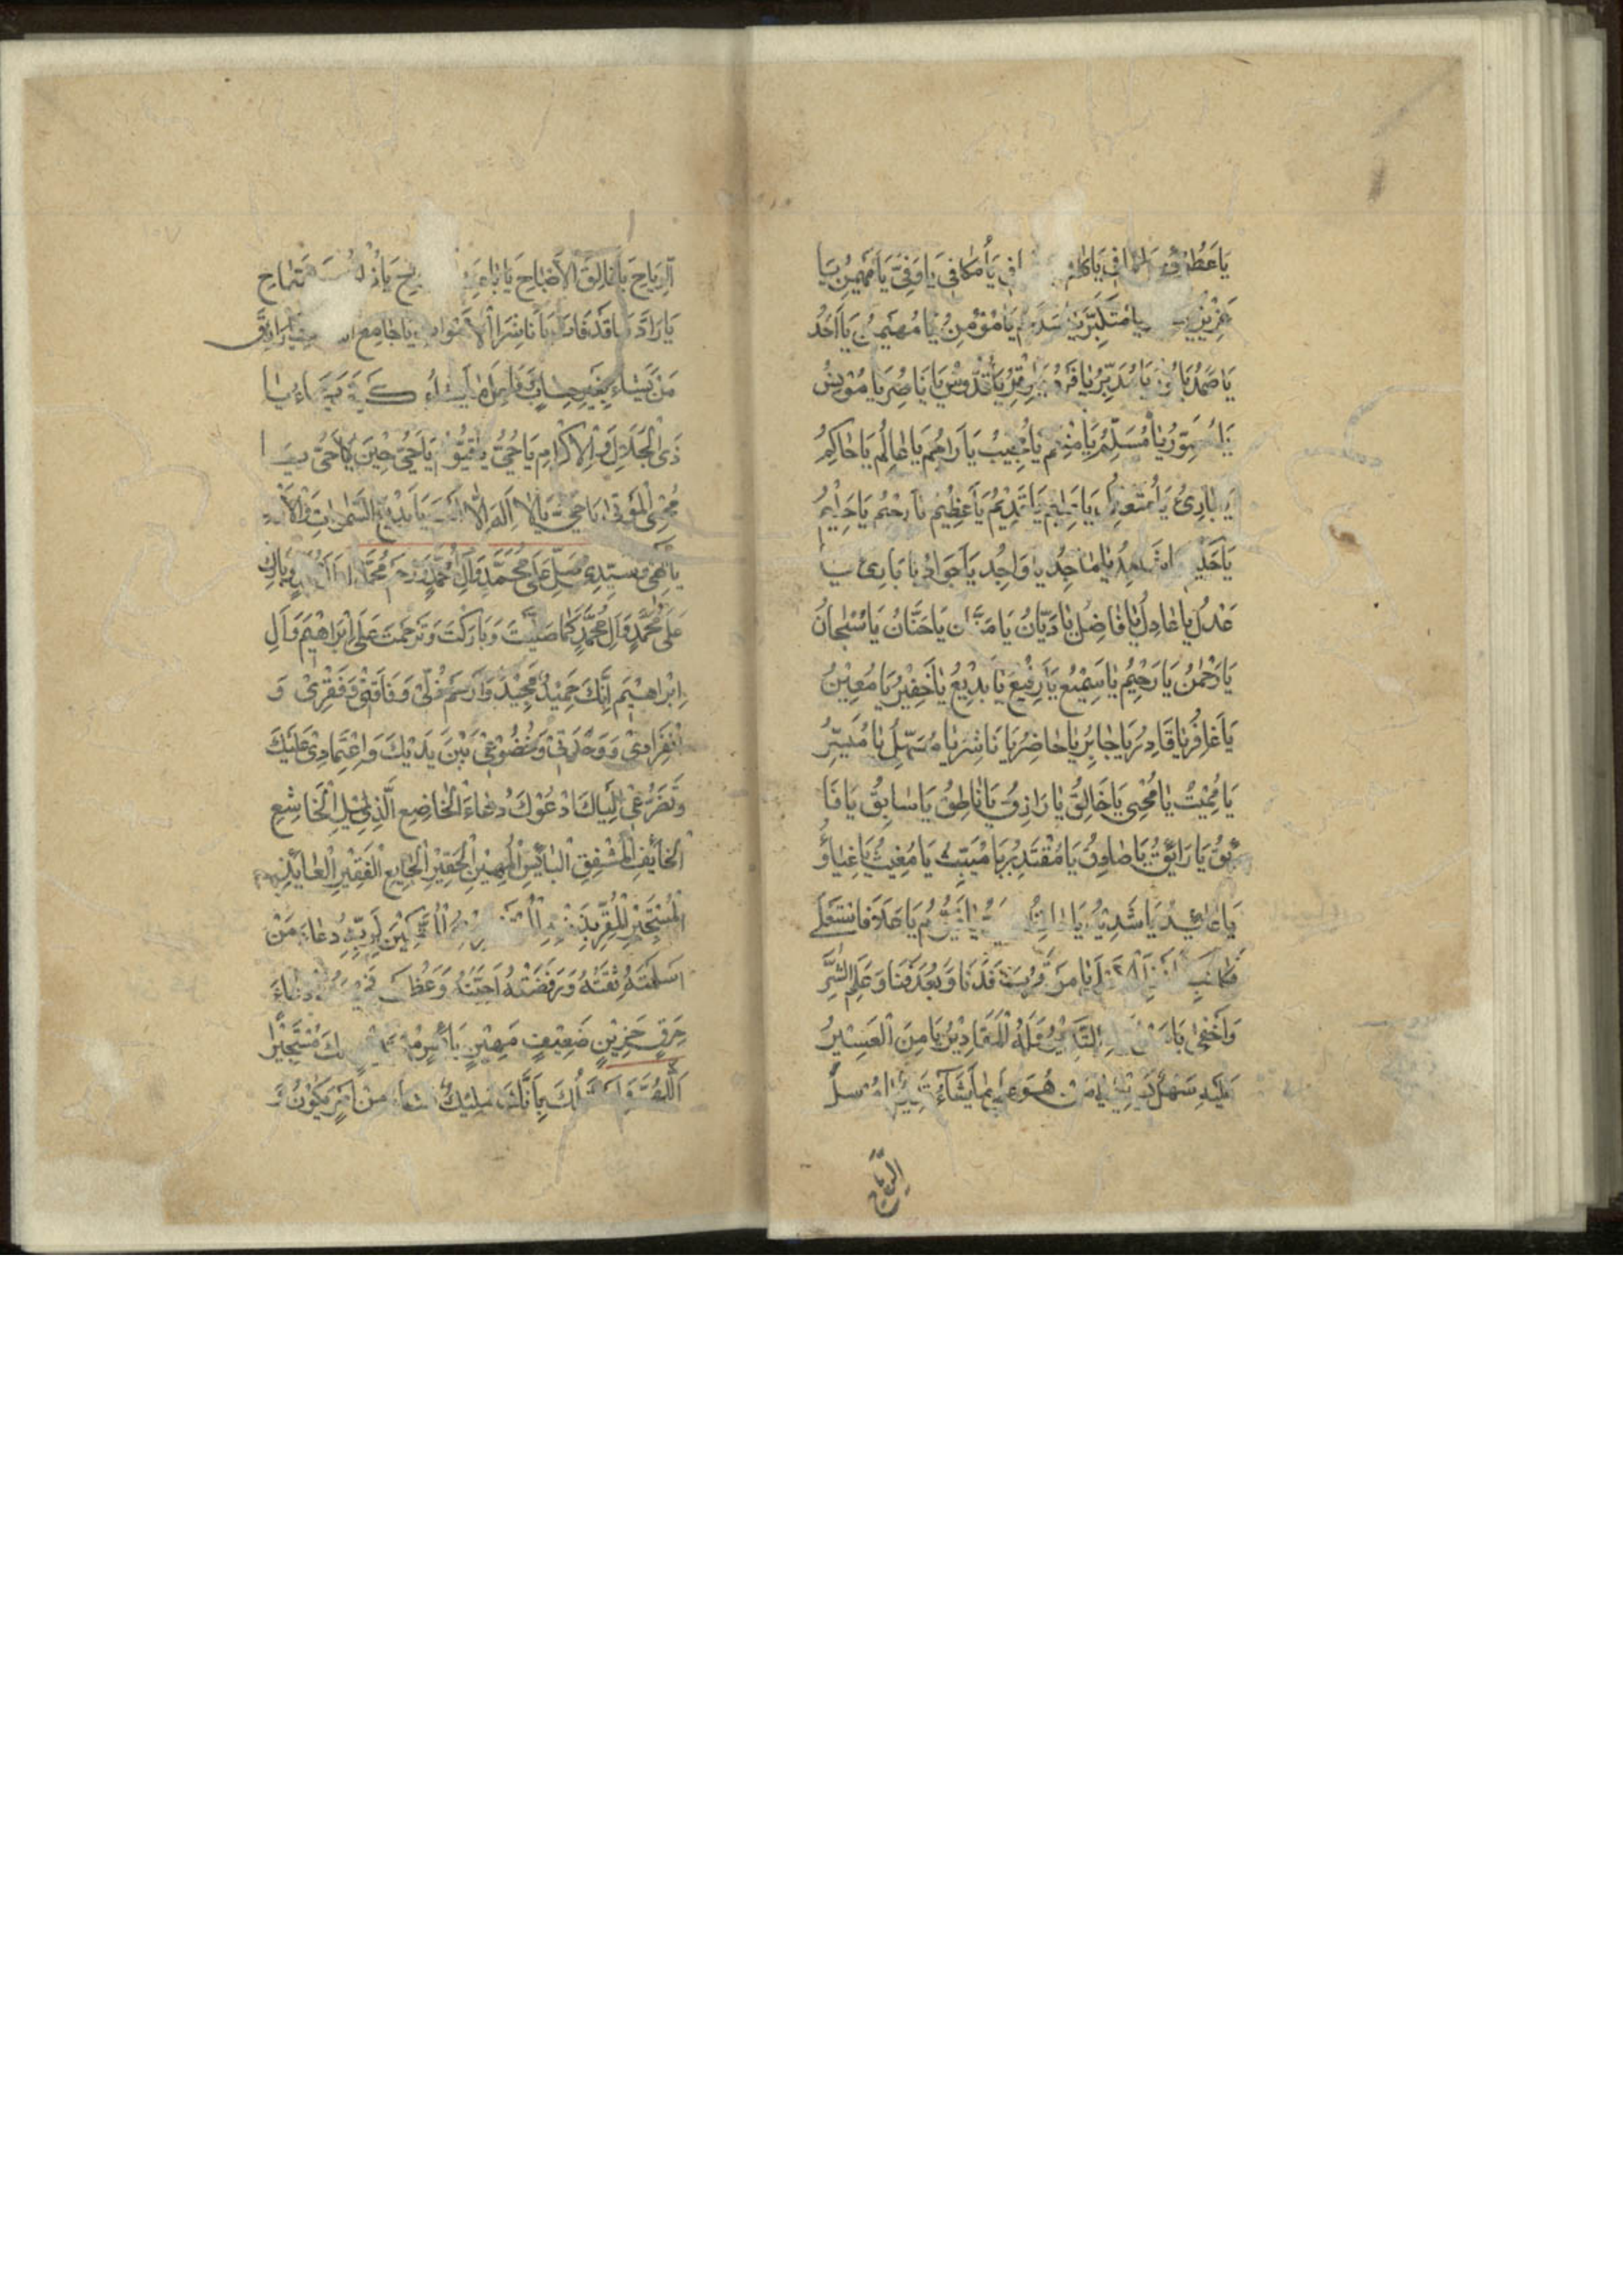 يَا عَطُوفُ يَا كَافِي يَا مُكَافِي يَا وَفِيُّ يَا مُهَيْمِنُ يَا
عَزِيزُ يَا مُتَكَبِّرُ يَا مُؤْمِنُ يَا مُهَيْمِنُ يَا اَحَدُ
يَا صَمَدُ يَا مُدَبِّرُ يَا فَرْدُ يَا وِتْرُ يَا قُدُّوسُ يَا نَاصِرُ يَا مُونِسُ
يَا مُسَلِّمُ يَا مُجِيبُ يَا رَاحِمُ يَا عَالِمُ يَا حَاكِمُ
يَا بَارِئُ يَا قَدِيمُ يَا عَظِيمُ يَا رَحِيمُ يَا حَلِيمُ
يَا مَاجِدُ يَا وَاجِدُ يَا جَوَادُ يَا بَارِئُ يَا
عَدْلُ يَا عَادِلُ يَا فَاضِلُ يَا دَيَّانُ يَا مَنَّانُ يَا حَنَّانُ يَا سُبْحَانُ
يَا رَحْمٰنُ يَا رَحِيمُ يَا سَمِيعُ يَا رَفِيعُ يَا بَدِيعُ يَا خَفِيرُ يَا مُعِينُ
يَا غَافِرُ يَا قَادِرُ يَا جَابِرُ يَا حَاضِرُ يَا نَاشِرُ يَا مُسَهِّلُ يَا مُيَسِّرُ
يَا مُمِيتُ يَا مُحْيِي يَا خَالِقُ يَا رَازِقُ يَا نَاطِقُ يَا سَابِقُ يَا فَا
ئِقُ يَا رَائِقُ يَا صَادِقُ يَا مُقْتَدِرُ يَا مُسَبِّبُ يَا مُغِيثُ يَا غِيَاثُ
يَا عَائِدُ يَا شَدِيدُ يَا قَيُّومُ يَا مَنْ عَلَا فَاسْتَعْلَى
فَكَانَ يَا مَنْ قَرُبَ فَدَنَا وَبَعُدَ فَنَا وَعَلِمَ السِّرَّ
وَاَخْفَى يَا مَنْ اِلَيْهِ التَّدْبِيرُ وَلَهُ الْمَقَادِيرُ يَا مَنِ الْعَسِيرُ
عَلَيْهِ سَهْلٌ يَسِيرٌ يَا مَنْ هُوَ عَلَى مَا يَشَاءُ قَدِيرٌ يَا مُرْسِلَ
الرِّيَاحِ
الرِّيَاحِ يَا فَالِقَ الْاَصْبَاحِ يَا بَاعِثَ
يَا رَادَّ مَا قَدْ فَاتَ يَا نَاشِرَ الْاَمْوَاتِ يَا جَامِعَ يَا رَازِقَ
مَنْ يَشَاءُ بِغَيْرِ حِسَابٍ يَا فَاعِلَ مَا يَشَاءُ كَيْفَ يَشَاءُ يَا
ذَى الْجَلَالِ وَالْاِكْرَامِ يَا حَيُّ يَا قَيُّومُ يَا حَيُّ حِينَ لَا حَيَّ يَا
مُحْيِيَ الْمَوْتَى يَا حَيُّ يَا لَا اِلٰهَ اِلَّا اَنْتَ يَا بَدِيعَ السَّمٰوَاتِ وَالْاَرْضِ
يَا اِلٰهِي وَسَيِّدِي صَلِّ عَلَى مُحَمَّدٍ وَآلِ مُحَمَّدٍ وَارْحَمْ مُحَمَّدًا وَآلَ مُحَمَّدٍ وَبَارِكْ
عَلَى مُحَمَّدٍ وَآلِ مُحَمَّدٍ كَمَا صَلَّيْتَ وَبَارَكْتَ وَتَرَحَّمْتَ عَلَى اِبْرَاهِيمَ وَآلِ
اِبْرَاهِيمَ اِنَّكَ حَمِيدٌ مَجِيدٌ وَارْحَمْ ذُلِّي وَفَاقَتِي وَفَقْرِي وَ
انْفِرَادِي وَوَحْدَتِي وَخُضُوعِي بَيْنَ يَدَيْكَ وَاعْتِمَادِي عَلَيْكَ
وَتَضَرُّعِي اِلَيْكَ اَدْعُوكَ دُعَاءَ الْخَاضِعِ الذَّلِيلِ الْخَاشِعِ
الْخَائِفِ الْمُشْفِقِ الْبَائِسِ الْمَهِينِ الْحَقِيرِ الْجَائِعِ الْفَقِيرِ الْعَائِذِ
الْمُسْتَجِيرِ الْمُقِرِّ بِذَنْبِهِ الْمُسْتَغْفِرِ مِنْهُ الْمُسْتَكِينِ لِرَبِّهِ دُعَاءَ مَنْ
اَسْلَمَتْهُ ثِقَتُهُ وَرَفَضَتْهُ اَحِبَّتُهُ وَعَظُمَتْ دُعَاءَ
حَرِقٍ حَزِينٍ ضَعِيفٍ مَهِينٍ بَائِسٍ مُسْتَجِيرٍ
اَللّٰهُمَّ وَاَسْئَلُكَ بِاَنَّكَ مَلِيكٌ مَا تَشَاءُ مِنْ اَمْرٍ يَكُونُ وَ